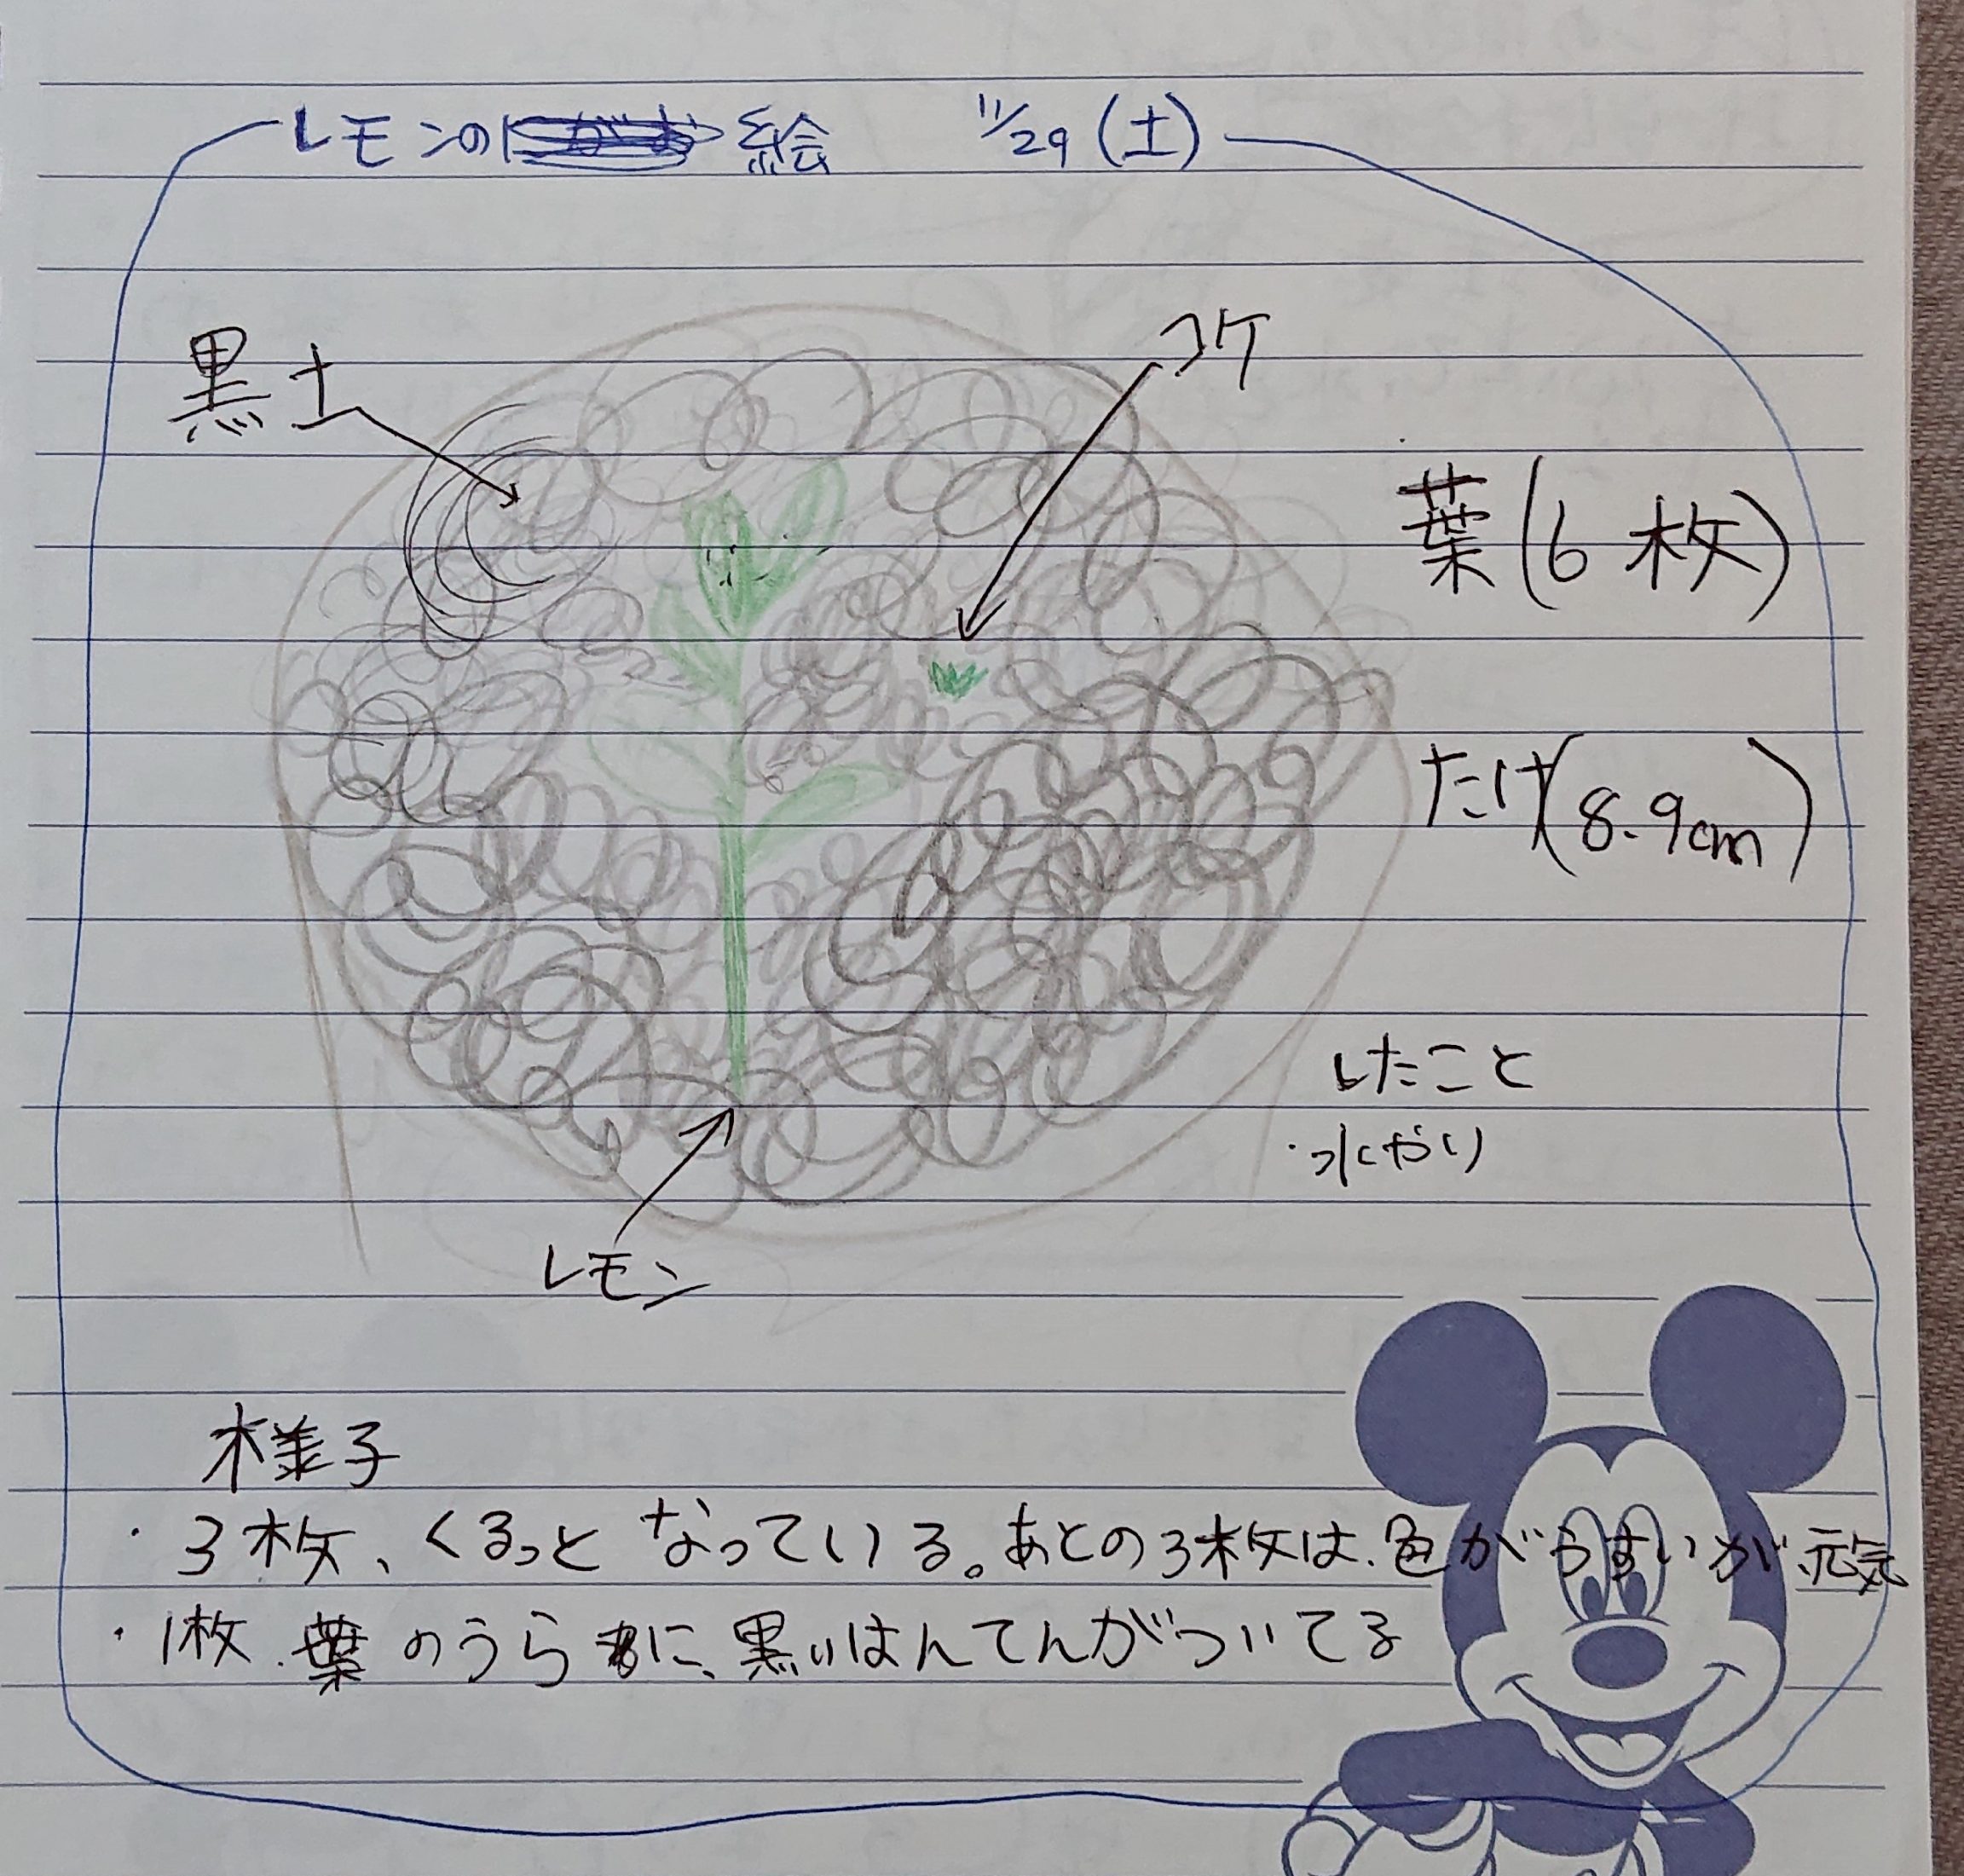 レモンの 絵 11/29(土)
黒土
コケ
葉(6枚)
たけ(8.9cm)
したこと
・水やり
レモン
様子
・3枚、くるっとなっている。あとの3枚は、色がうすいが、元気
・1枚、葉のうらに、黒いはんてんがついてる